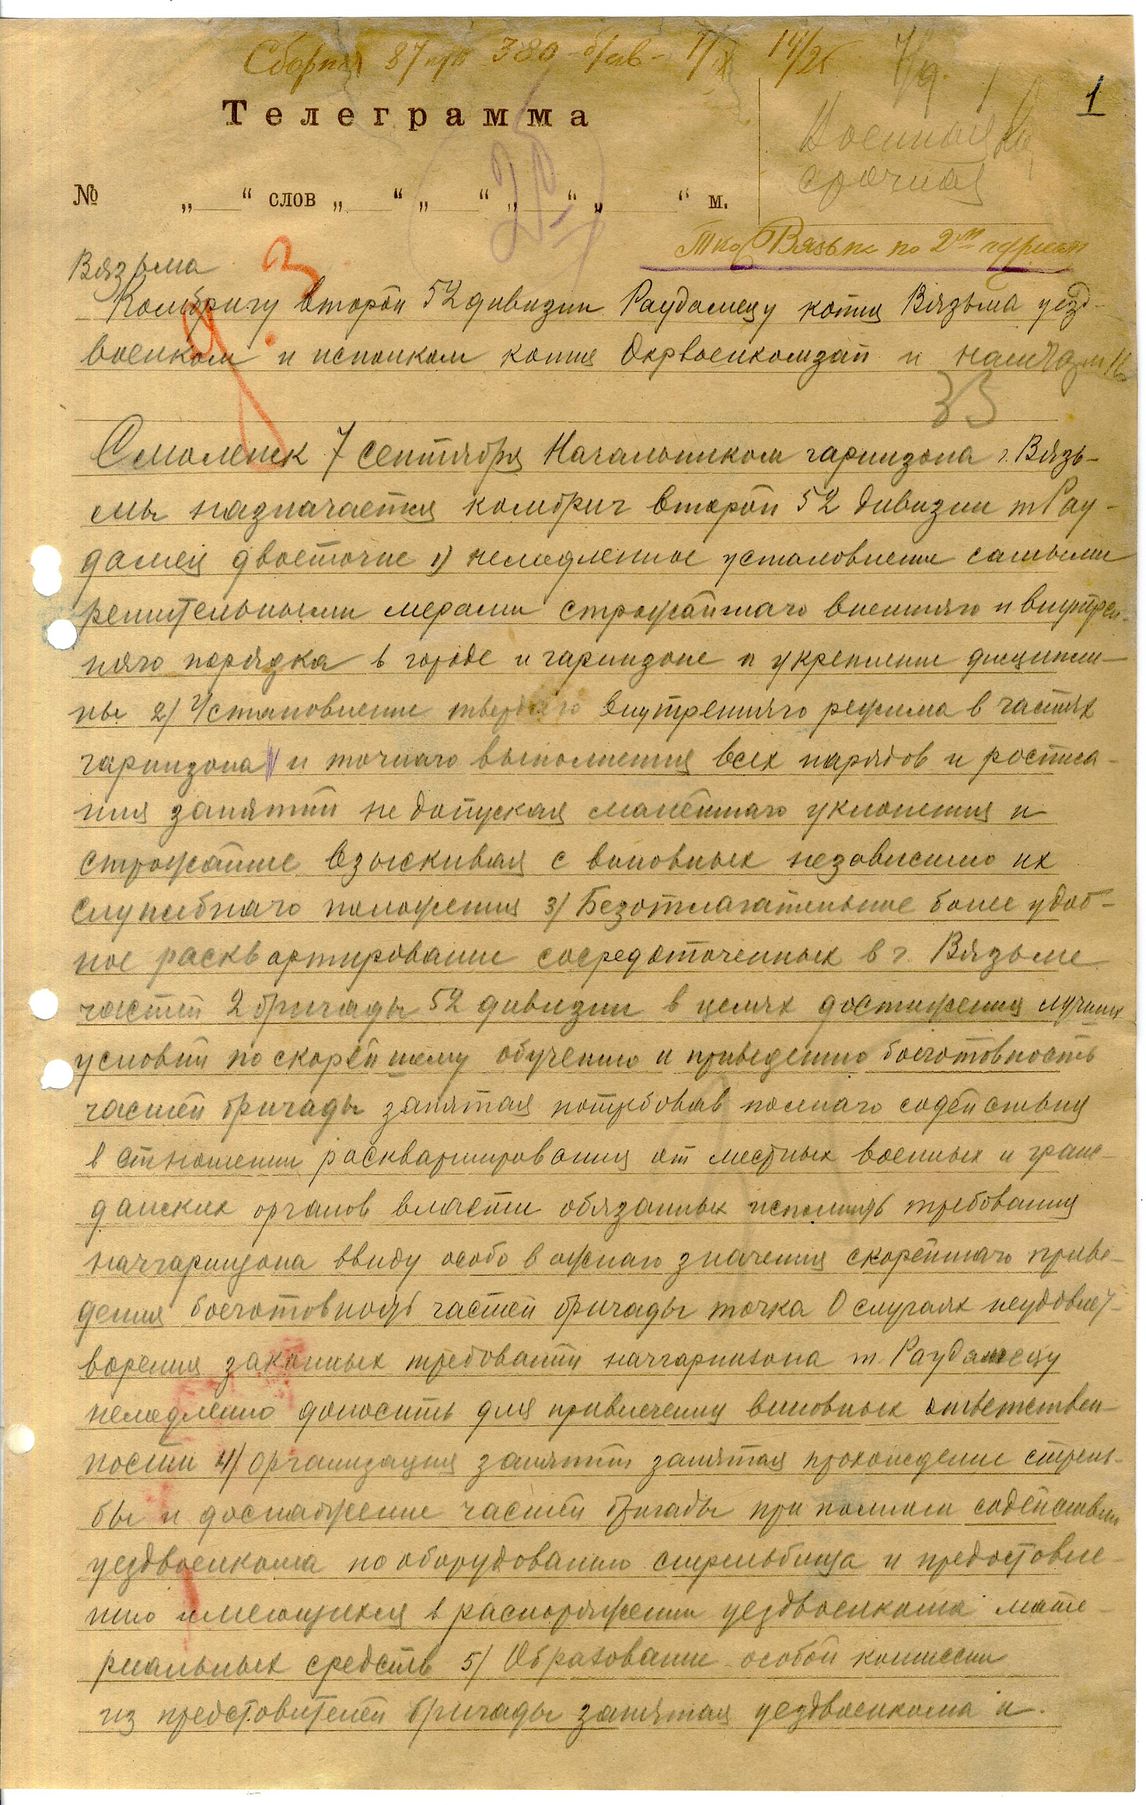 Сборная 87 380 14/25 7/9
1
Телеграмма
Военная
срочная
№ „ “ слов „ “ „ “ „ “ „ “ м.
Вязьма по 2
Вязьма
Комбригу второй 52 дивизии Раудамецу копия Вязьма уезд-
военком и исполком копия Окрвоенкомзап и
33
Смоленск 7 сентября Начальником гарнизона г. Вязь-
мы назначается комбриг второй 52 дивизии т Рау-
дамец двоеточие 1) немедленное установление самыми
решительными мерами строжайшаго внешняго и внутрен-
няго порядка в городе и гарнизоне и укрепление дисципли-
ны 2) Установление твердаго внутренняго режима в частях
гарнизона и точнаго выполнения всех нарядов и росписа-
ния занятий не допуская малейшаго уклонения и
строжайше взыскивая с виновных независимо их
служебнаго положения 3) Безотлагательное более удоб-
ное расквартирование сосредоточенных в г. Вязьме
частей 2 бригады 52 дивизии в целях достижения лучших
условий по скорейшему обучению и приведению боеготовность
частей бригады запятая потребовав полнаго содействия
в отношении расквартирования от местных военных и граж-
данских органов власти обязанных исполнять требования
начгарнизона ввиду особо важнаго значения скорейшаго приве-
дения боеготовность частей бригады точка О случаях неудовлет-
ворения законных требований начгарнизона т. Раудамецу
немедленно доносить для привлечения виновных ответствен-
ности 4) Организация занятий запятая прохождение стрель-
бы и доснабжение частей бригады при полном содействии
уездвоенкома по оборудованию стрельбища и предоставле-
нию имеющихся в распоряжении уездвоенкома мате-
риальных средств 5) Образование особой комиссии
из представителей бригады запятая уездвоенкома и